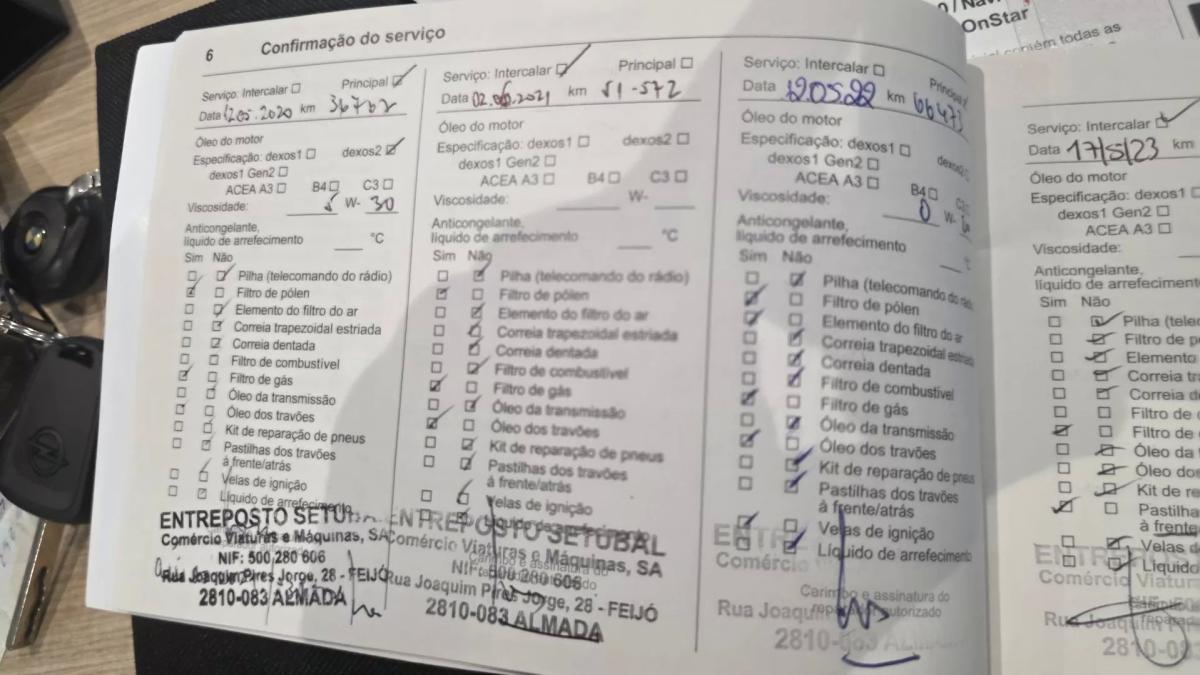 6 Confirmação do serviço
Serviço: Intercalar Principal
Data 12.05.2020 km 36762
Óleo do motor
Especificação: dexos1 dexos2
dexos1 Gen2
ACEA A3 B4 C3
Viscosidade: W- 30
Anticongelante,
líquido de arrefecimento °C
Sim Não
Pilha (telecomando do rádio)
Filtro de pólen
Elemento do filtro do ar
Correia trapezoidal estriada
Correia dentada
Filtro de combustível
Filtro de gás
Óleo da transmissão
Óleo dos travões
Kit de reparação de pneus
Pastilhas dos travões
à frente/atrás
Velas de ignição
Líquido de arrefecimento
ENTREPOSTO SETUBAL
Comércio Viaturas e Máquinas, SA
NIF: 500 280 606
Rua Joaquim Pires Jorge, 28 - FEIJÓ
2810-083 ALMADA
Serviço: Intercalar Principal
Data 02.06.2021 km 51-572
Óleo do motor
Especificação: dexos1 dexos2
dexos1 Gen2
ACEA A3 B4 C3
Viscosidade: W-
Anticongelante,
líquido de arrefecimento °C
Sim Não
Pilha (telecomando do rádio)
Filtro de pólen
Elemento do filtro do ar
Correia trapezoidal estriada
Correia dentada
Filtro de combustível
Filtro de gás
Óleo da transmissão
Óleo dos travões
Kit de reparação de pneus
Pastilhas dos travões
à frente/atrás
Velas de ignição
Líquido de arrefecimento
ENTREPOSTO SETUBAL
Comércio Viaturas e Máquinas, SA
Carimbo e assinatura do
NIF: 500 280 606
Rua Joaquim Pires Jorge, 28 - FEIJÓ
2810-083 ALMADA
Serviço: Intercalar Principal
Data 12.05.22 km 66473
Óleo do motor
Especificação: dexos1 dexos2
dexos1 Gen2
ACEA A3 B4 C3
Viscosidade: 0 W-
Anticongelante,
líquido de arrefecimento °C
Sim Não
Pilha (telecomando do rádio)
Filtro de pólen
Elemento do filtro do ar
Correia trapezoidal estriada
Correia dentada
Filtro de combustível
Filtro de gás
Óleo da transmissão
Óleo dos travões
Kit de reparação de pneus
Pastilhas dos travões
à frente/atrás
Velas de ignição
Líquido de arrefecimento
ENTRE
Comércio
Carimbo e assinatura do
Rua Joaquim reparador autorizado
2810-083 ALMA
OnStar
contém todas as
Serviço: Intercalar
Data 17/5/23 km
Óleo do motor
Especificação: dexos1
dexos1 Gen2
ACEA A3
Viscosidade:
Anticongelante,
líquido de arrefecimento
Sim Não
Pilha (telec
Filtro de p
Elemento
Correia tra
Correia d
Filtro de
Filtro de
Óleo da
Óleo dos
Kit de re
Pastilha
à frente
Velas d
Líquido
Comércio Viatur
Rua Joaquim
2810-08